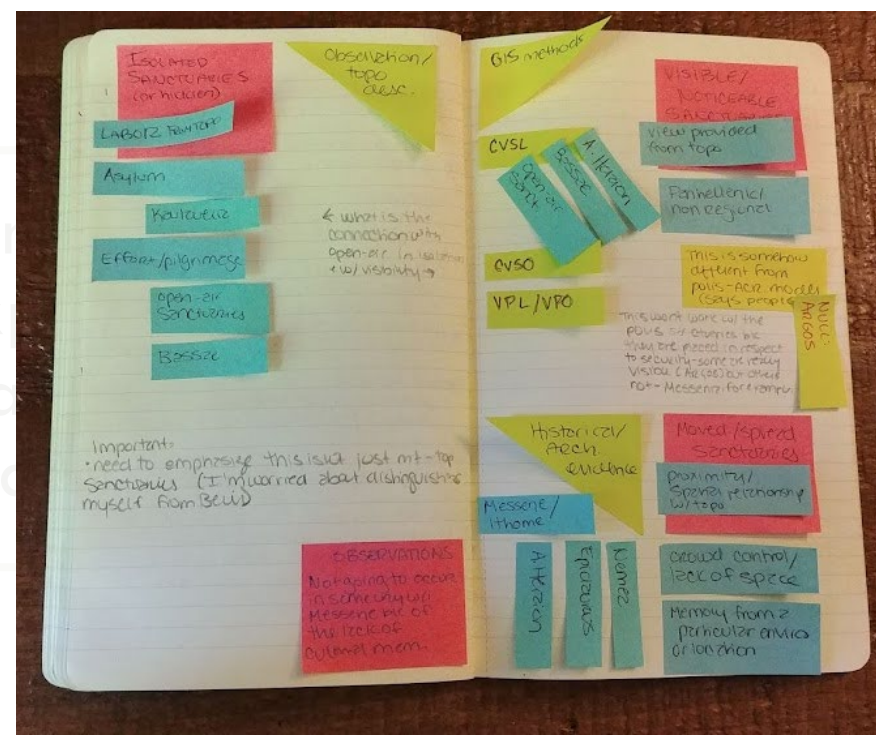 ISOLATED
SANCTUARIES
(or hidden)
LABOR FROM TOPO
Asylum
Effort/pilgrimage
open-air
Sanctuaries
Bassae
Observation/
topo
desc.
← what is the
connection with
open-air in isolation
+ w/ visibility →
Important:
• need to emphasize this isn't just mt-top
sanctuaries (I'm worried about distinguishing
myself from Belis)
OBSERVATIONS
Not going to occur
in same way w/
Messene b/c of
the lack of
cultural mem.
GIS methods
CVSL
open-air
sanct
Bassae
A. Heraion
CVSO
VPL/VPO
VISIBLE/
NOTICEABLE
SANCTUARIES
View provided
from topo
Panhellenic/
non regional
This is somehow
different from
polis-ACR models
(says people
NULL:
ARGOS
This won't work w/ the
polis bc
they are placed in respect
to security-some are really
visible (ARGOS) but others
not-Messene for example
Historical/
Arch.
evidence
Messene/
Ithome
A. Heraion
Epidaurus
Nemea
Moved/spread
sanctuaries
proximity/
spatial relationship
w/topo
crowd control/
lack of space
Memory from a
particular enviro
or location